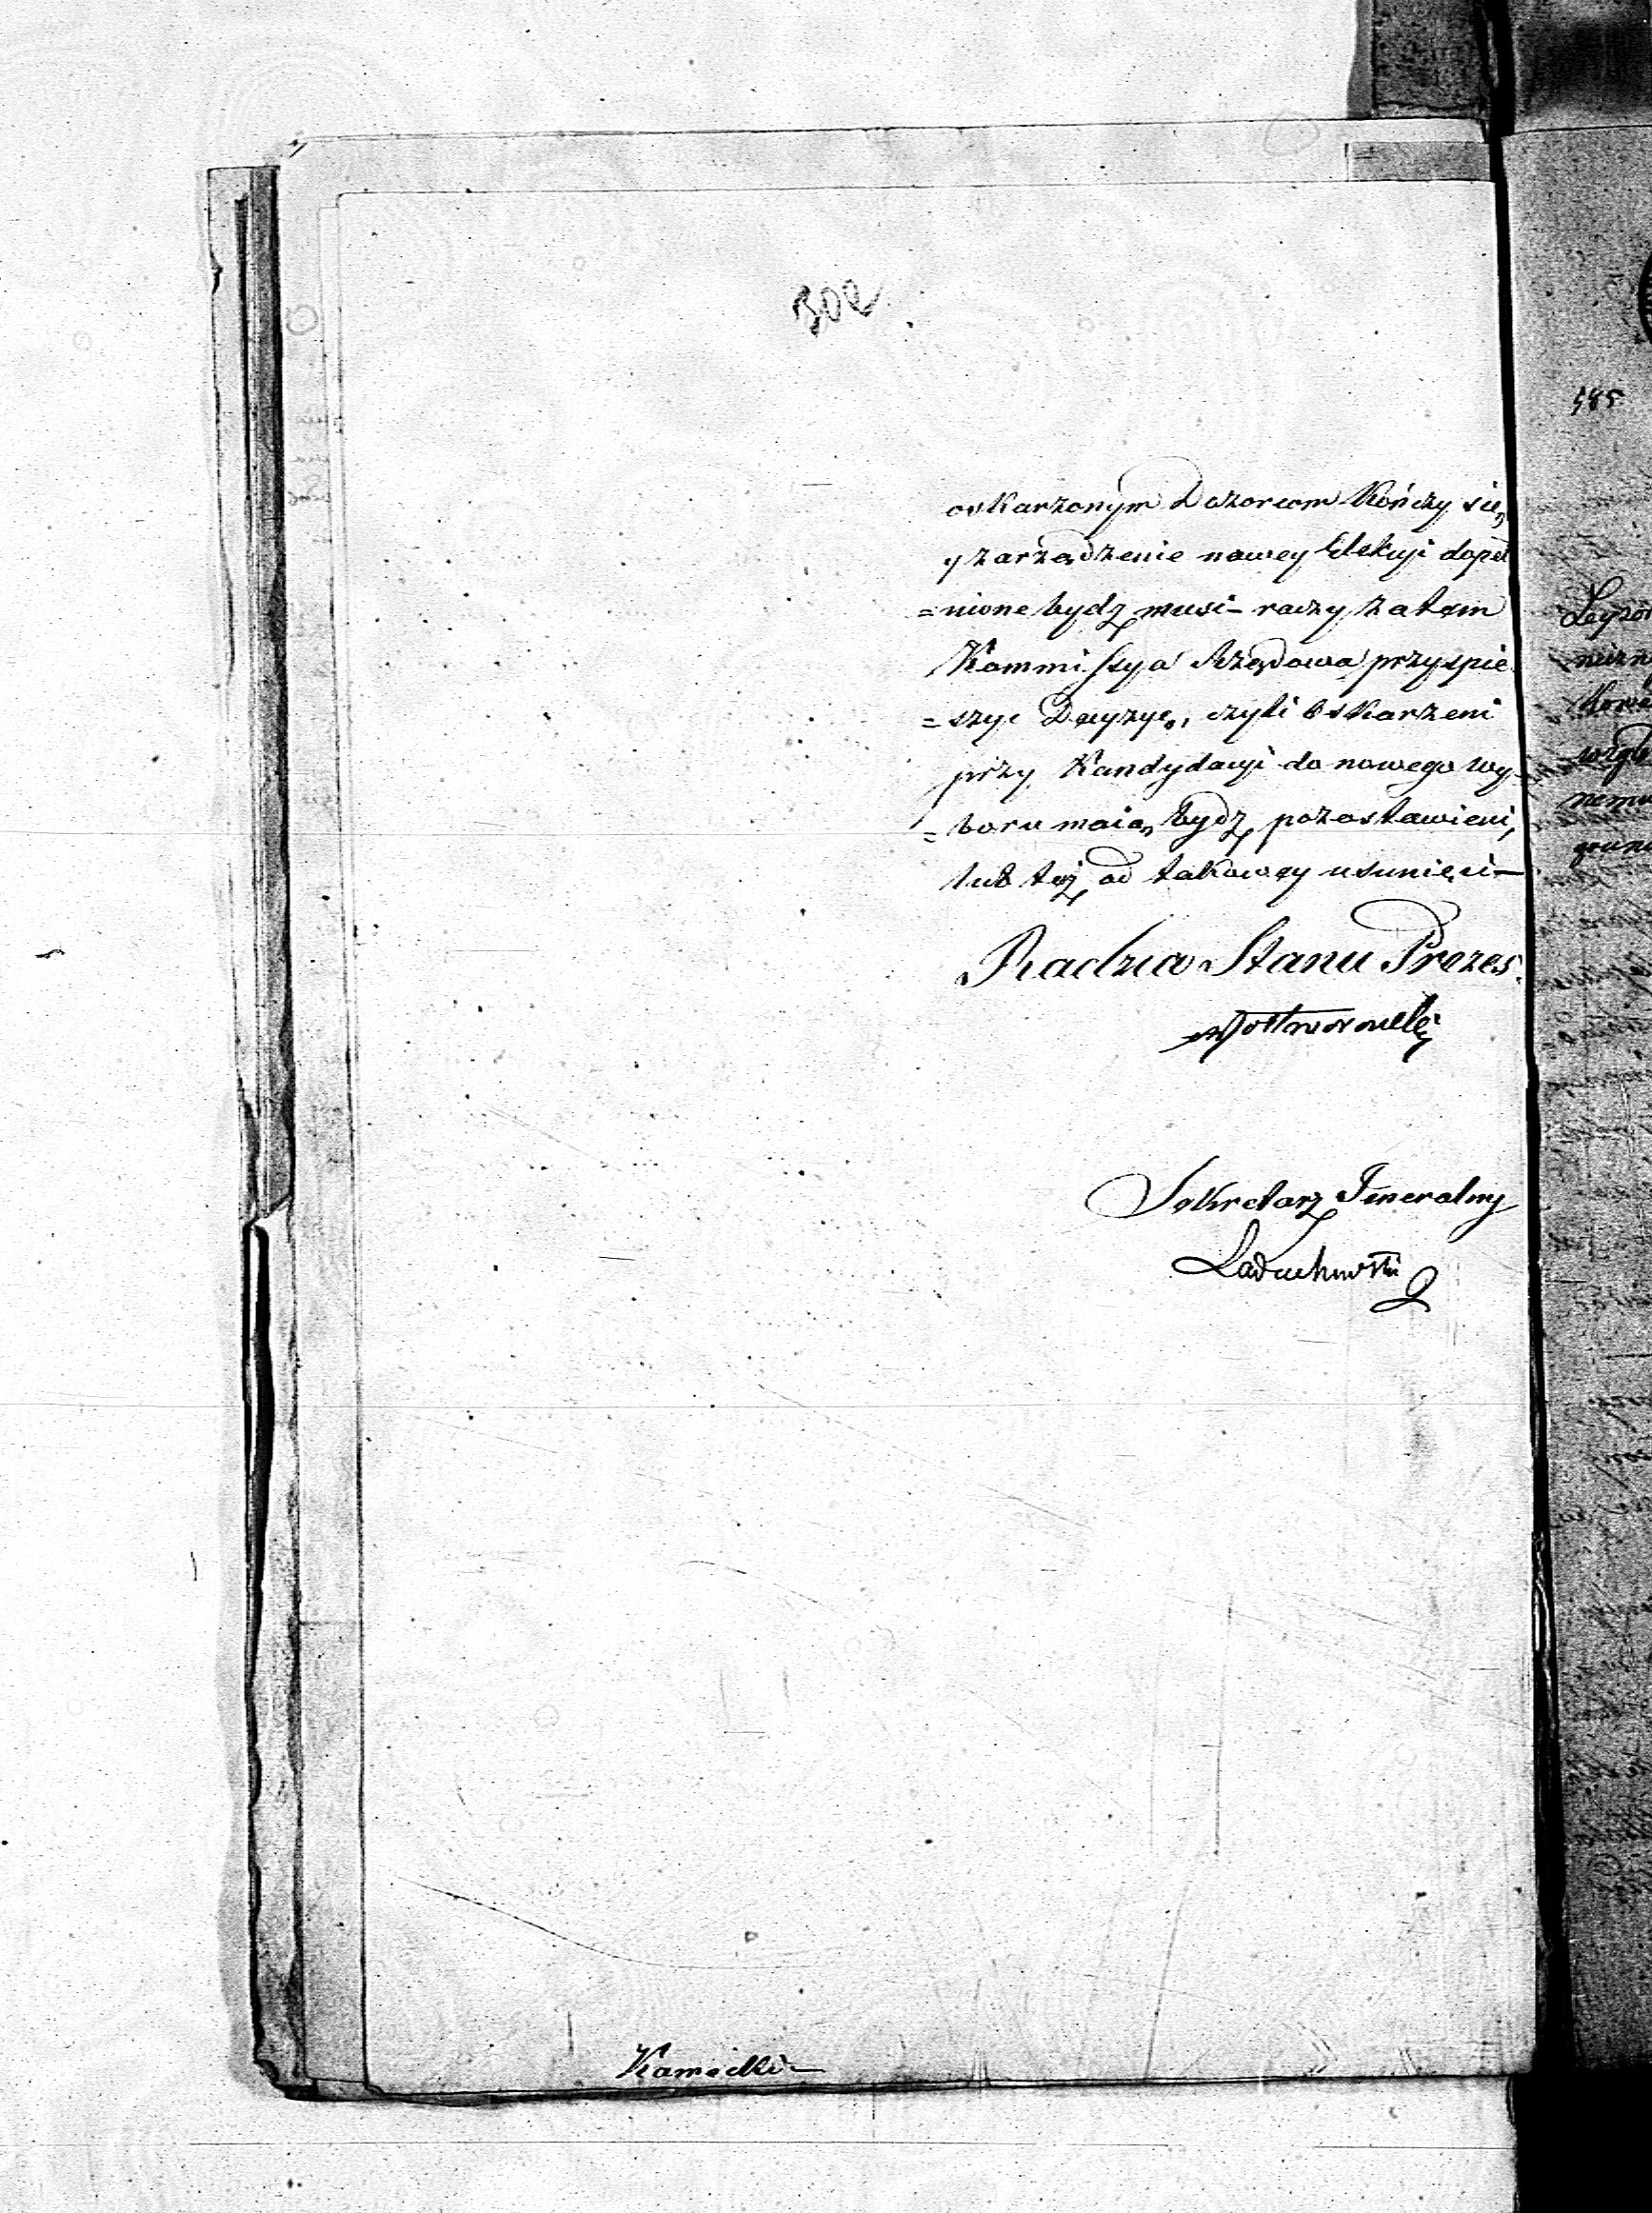 302
oskarżonym Dozorcom Kończy się,
y zarządzenie nowey Elekcyi dopeł
=nione bydź musi – raczy zatem
Kommissya Rządowa przyspie
=szyc Decyzyę, czyli Oskarzeni
przy Kandydacyi do nowego wy-
=boru maią bydź pozostawieni,
lub też od takowey usunięci –
Radzca Stanu Prezes
Sekretarz Jeneralny
Kamocki